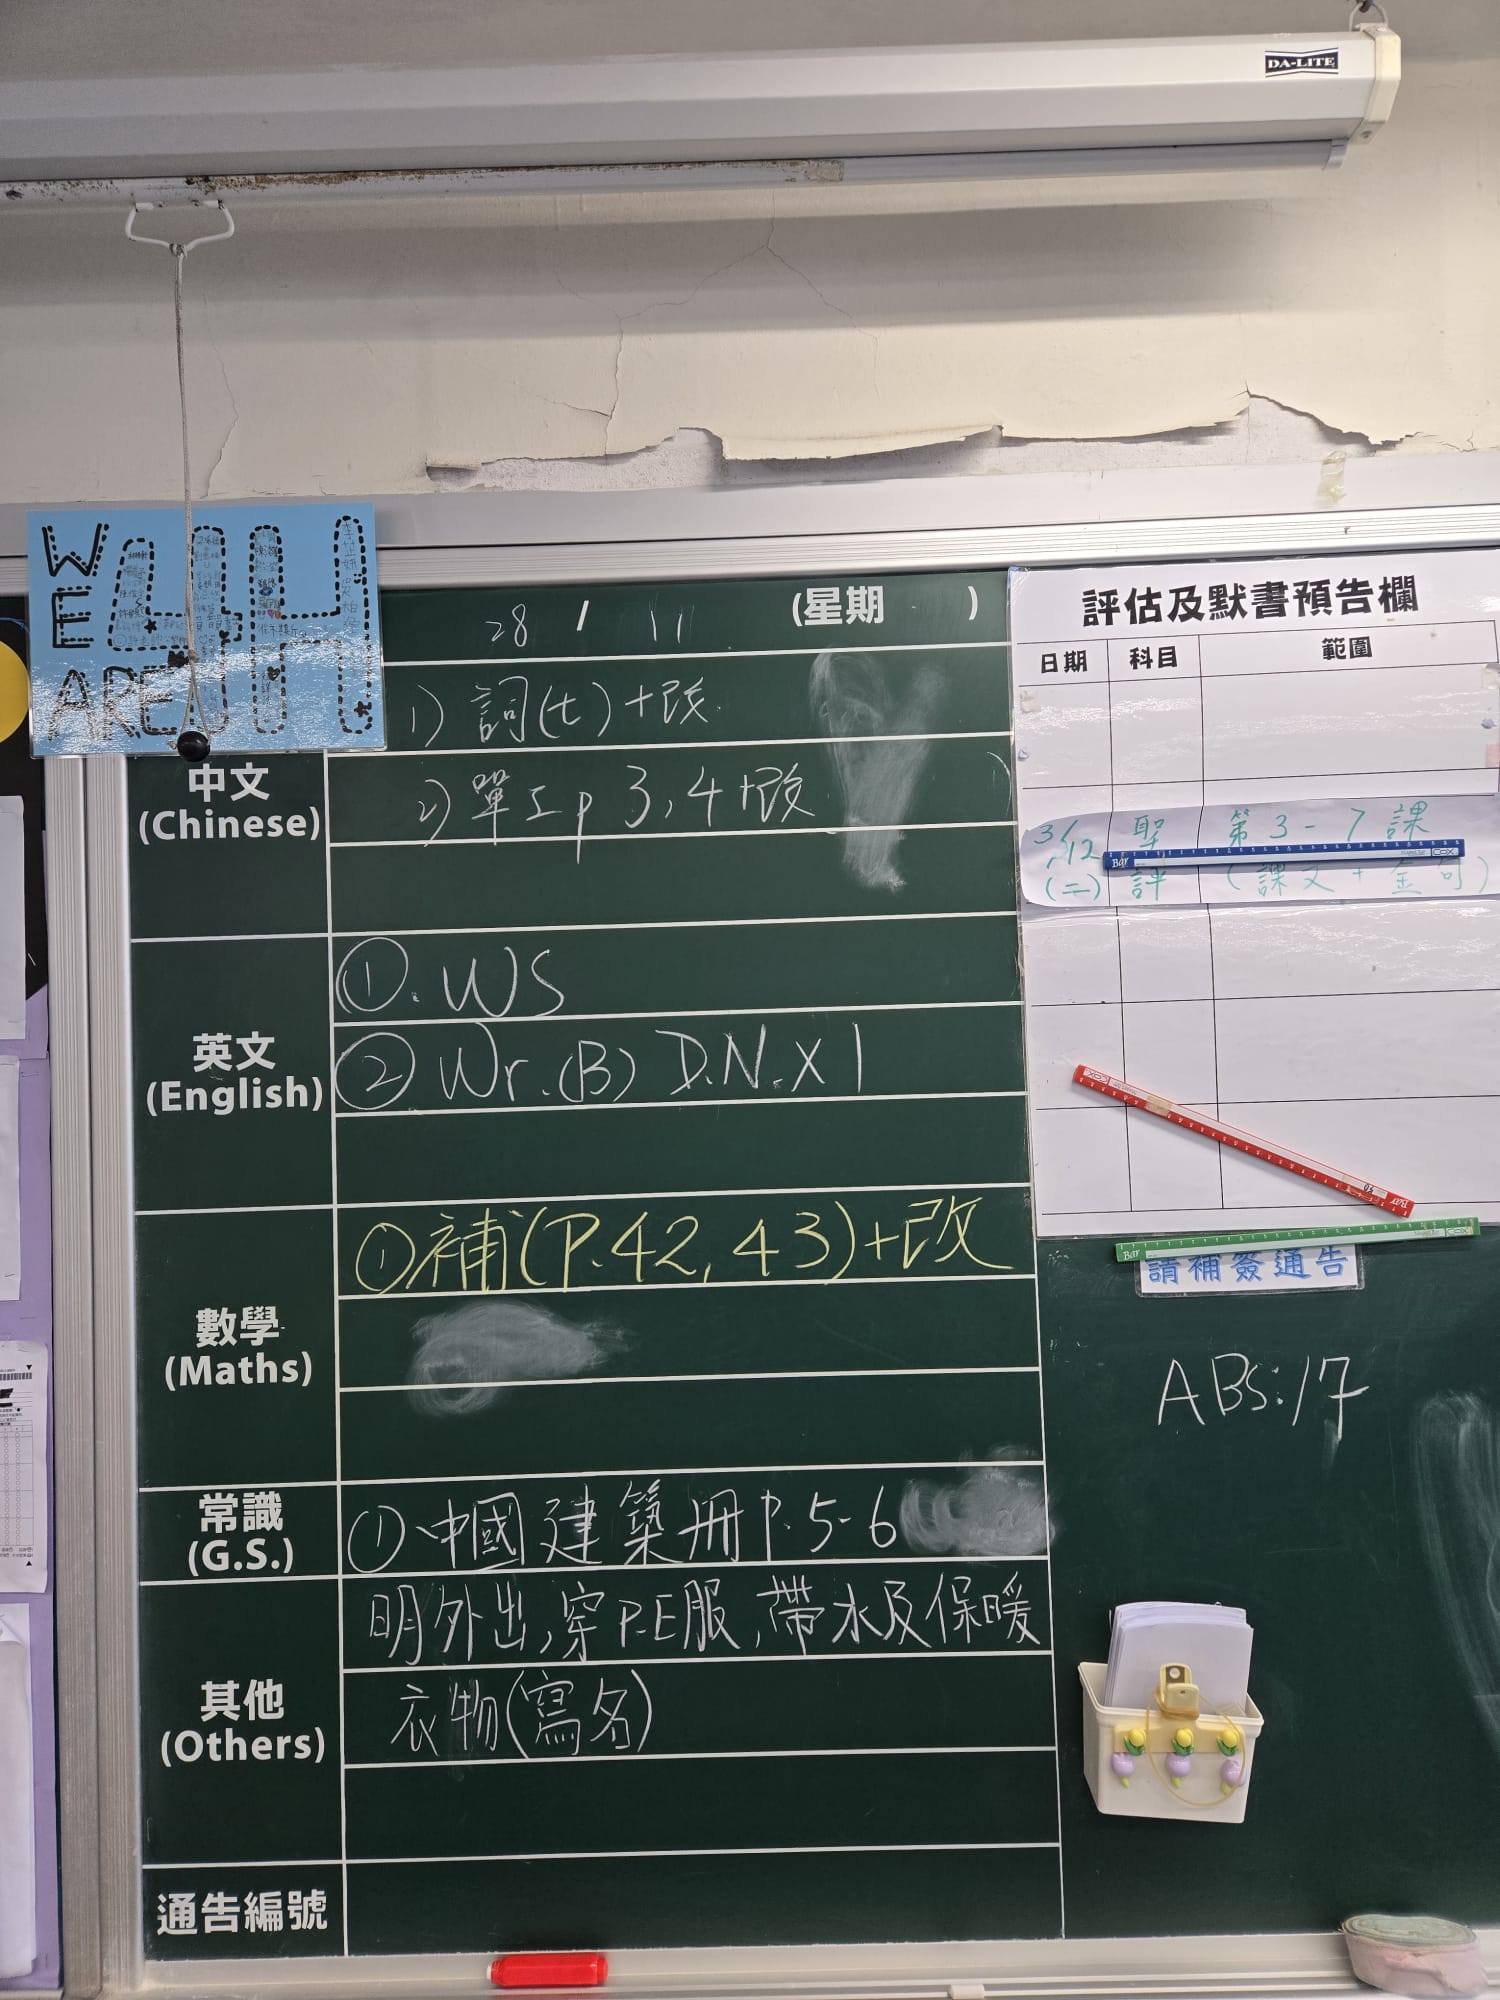 DA-LITE
WE
ARE
4H
28 / 11 (星期 )
評估及默書預告欄
日期 科目 範圍
3/12 聖 第3-7課
(二) 評 (課文+金句)
中文
(Chinese)
1) 詞(七)+改
2) 單工p 3,4+改
)
英文
(English)
①. WS
② Wr.(B) D.N.x1
數學
(Maths)
①補(P.42,43)+改
常識
(G.S.)
①中國建築冊P.5-6
其他
(Others)
明外出,穿P.E服,帶水及保暖
衣物(寫名)
通告編號
請補簽通告
ABs:17